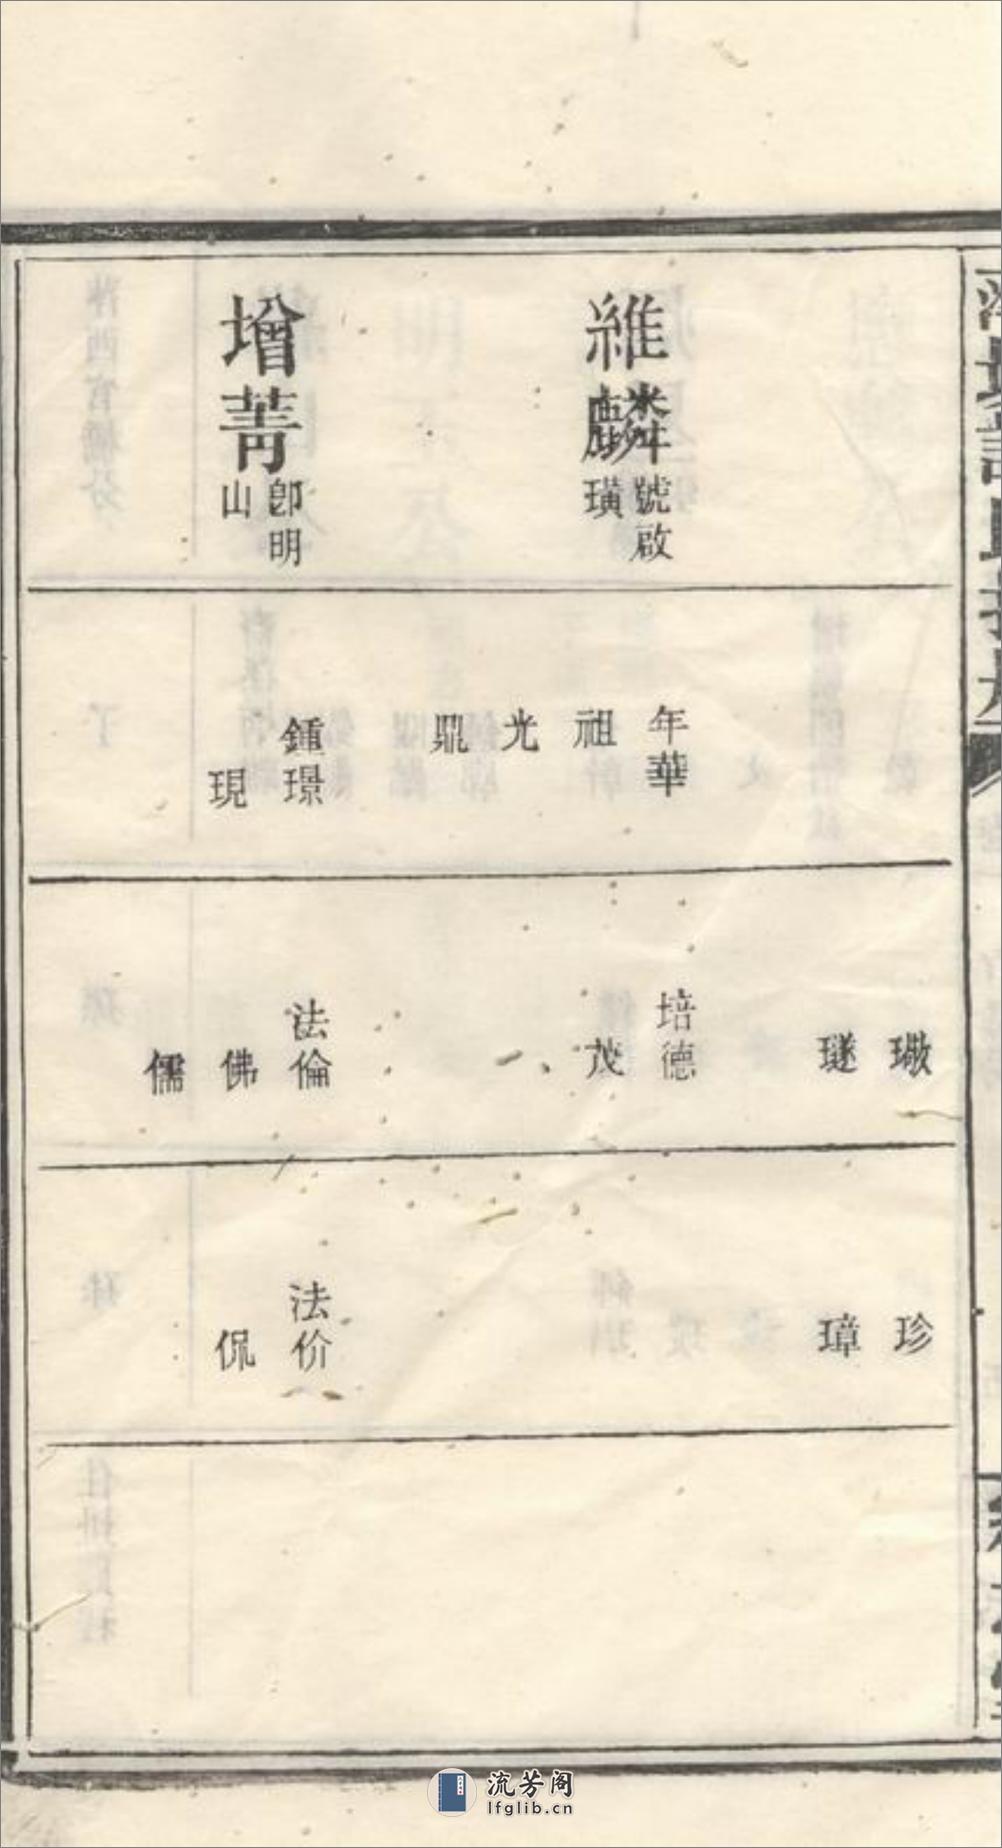 維麟號啟璜
增菁卽明山
年華
祖
光
鼎
鍾璟
現
璥
璲
培德
茂
法倫
佛
儒
珍
璋
法价
侃
流芳阁
lfglib.cn